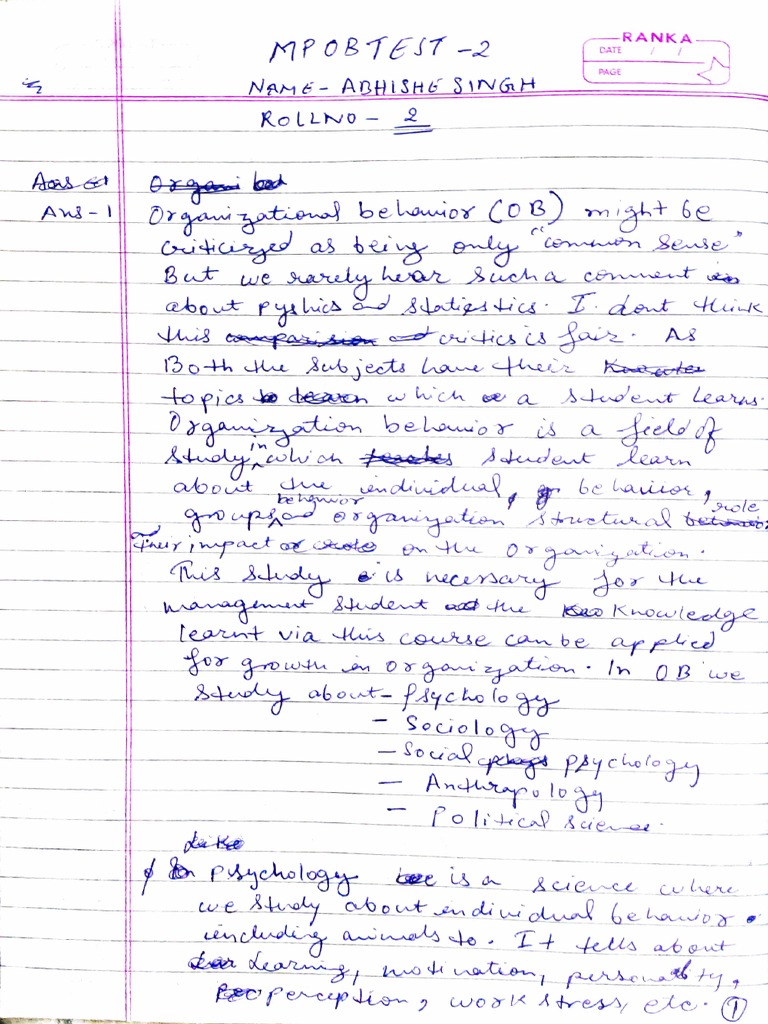 MPOBTEST -2
RANKA
DATE / /
PAGE
NAME - ABHISHE SINGH
ROLLNO - 2
Ans
Organi
Ans-1 Organizational behavior (OB) might be
criticized as being only "common sense"
But we rarely hear such a comment
about pyshics and statiestics. I dont think
this comparision critics is fair. As
Both the subjects have their
topics to learn which a student learns.
Organization behavior is a field of
study in which teaches student learn
about the individual, behavior,
groups behavior and organization structural role
Their impact on the organization.
This study is necessary for the
management student the Knowledge
learnt via this course can be applied
for growth in organization. In OB we
study about - Psychology
- Sociology
- Social psychology
- Anthropology
- Political science.
Like
In psychology is a science where
we study about individual behavior
including animals to. It tells about
Learning, motivation, personality,
perception, work stress, etc. 1